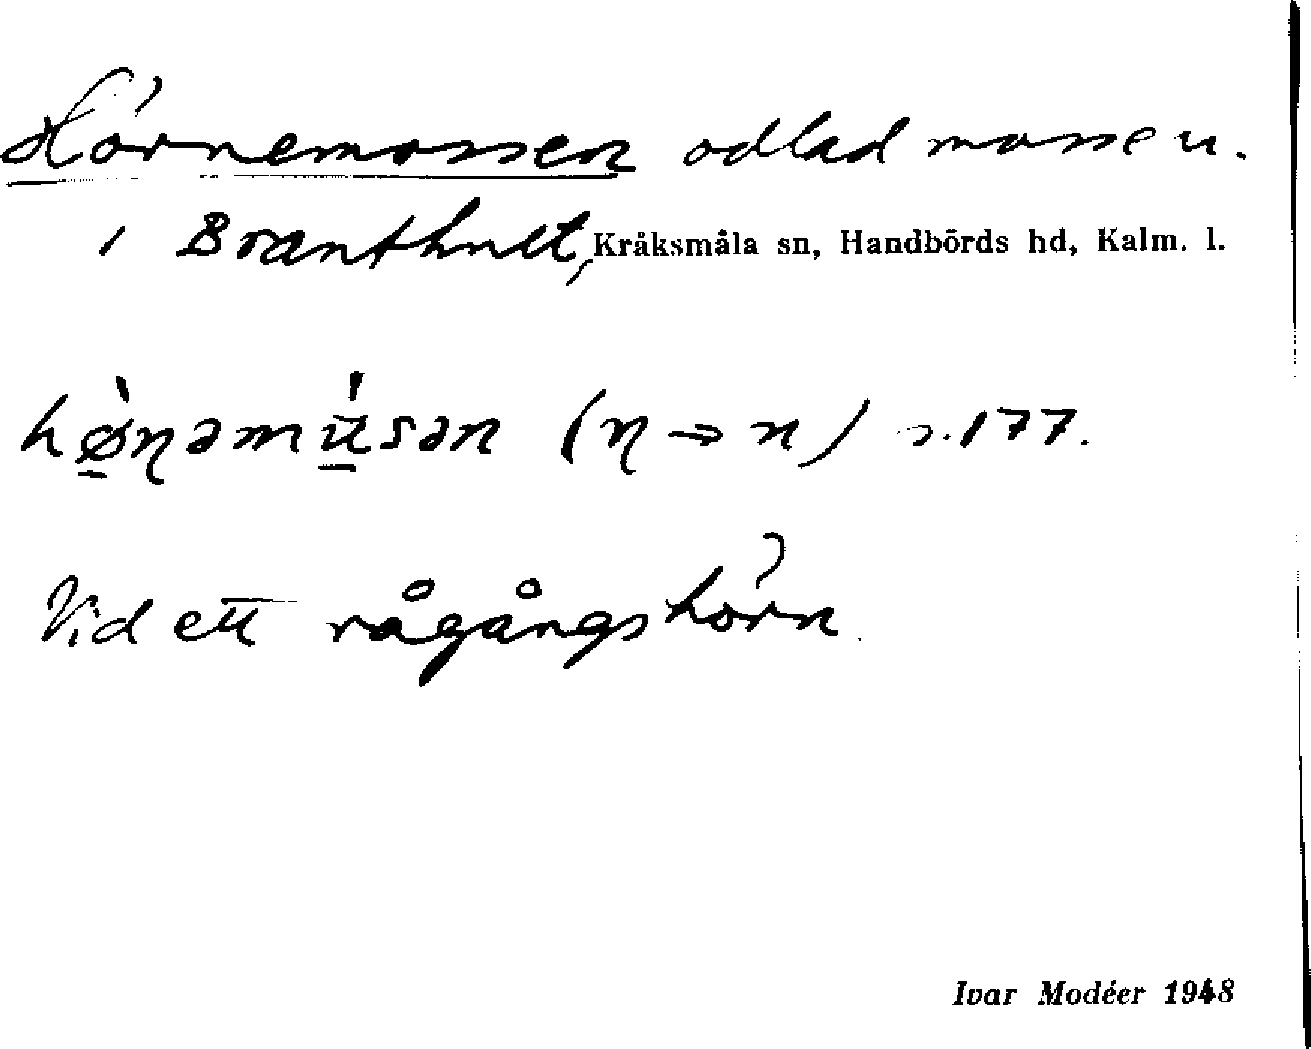 Hörnemossen odlad mosse u.
i Branthult, Kråksmåla sn, Handbörds hd, Kalm. l.
(η → n) s. 177.
Vid ett rågångshörn
Ivar Modéer 1948